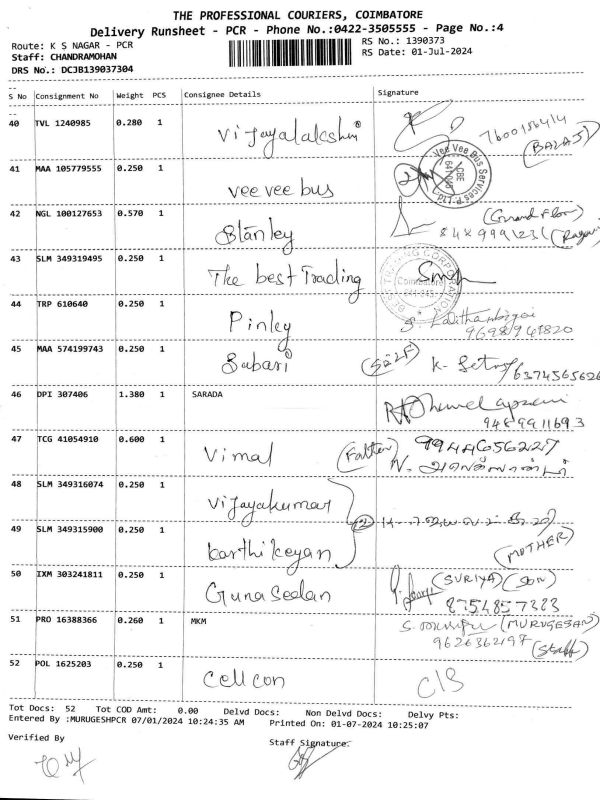 THE PROFESSIONAL COURIERS, COIMBATORE
Delivery Runsheet - PCR - Phone No.:0422-3505555 - Page No.:4
Route: K S NAGAR - PCR
RS No.: 1390373
Staff: CHANDRAMOHAN
RS Date: 01-Jul-2024
DRS No.: DCJB139037304
S No Consignment No Weight PCS Consignee Details Signature
40 TVL 1240985 0.280 1 Vijayalakshmi 7600156414
(BALAJI)
41 MAA 105779555 0.250 1 vee vee bus
Vee Vee Bus Services P Ltd
CBE
42 NGL 100127653 0.570 1 Stanley (Grand Floor)
(Rajan)
43 SLM 349319495 0.250 1 The best Trading
BEST TRADING CORPORATION
Coimbatore
44 TRP 610640 0.250 1 Pinley
45 MAA 574199743 0.250 1 Sabari (SELF) K-
6374565626
46 DPI 307406 1.380 1 SARADA
9489911693
47 TCG 41054910 0.600 1 Vimal (Father) 9944656227
48 SLM 349316074 0.250 1 Vijayakumar
49 SLM 349315900 0.250 1 Karthikeyan (2)
(MOTHER)
50 IXM 303241811 0.250 1 Gunaseelan (SURIYA) (Son)
8754857383
51 PRO 16388366 0.260 1 MKM (MURUGESAN)
9626362197 (Staff)
52 POL 1625203 0.250 1 Cell con C/S
Tot Docs: 52 Tot COD Amt: 0.00 Delvd Docs: Non Delvd Docs: Delvy Pts:
Entered By :MURUGESHPCR 07/01/2024 10:24:35 AM Printed On: 01-07-2024 10:25:07
Verified By
Staff Signature: